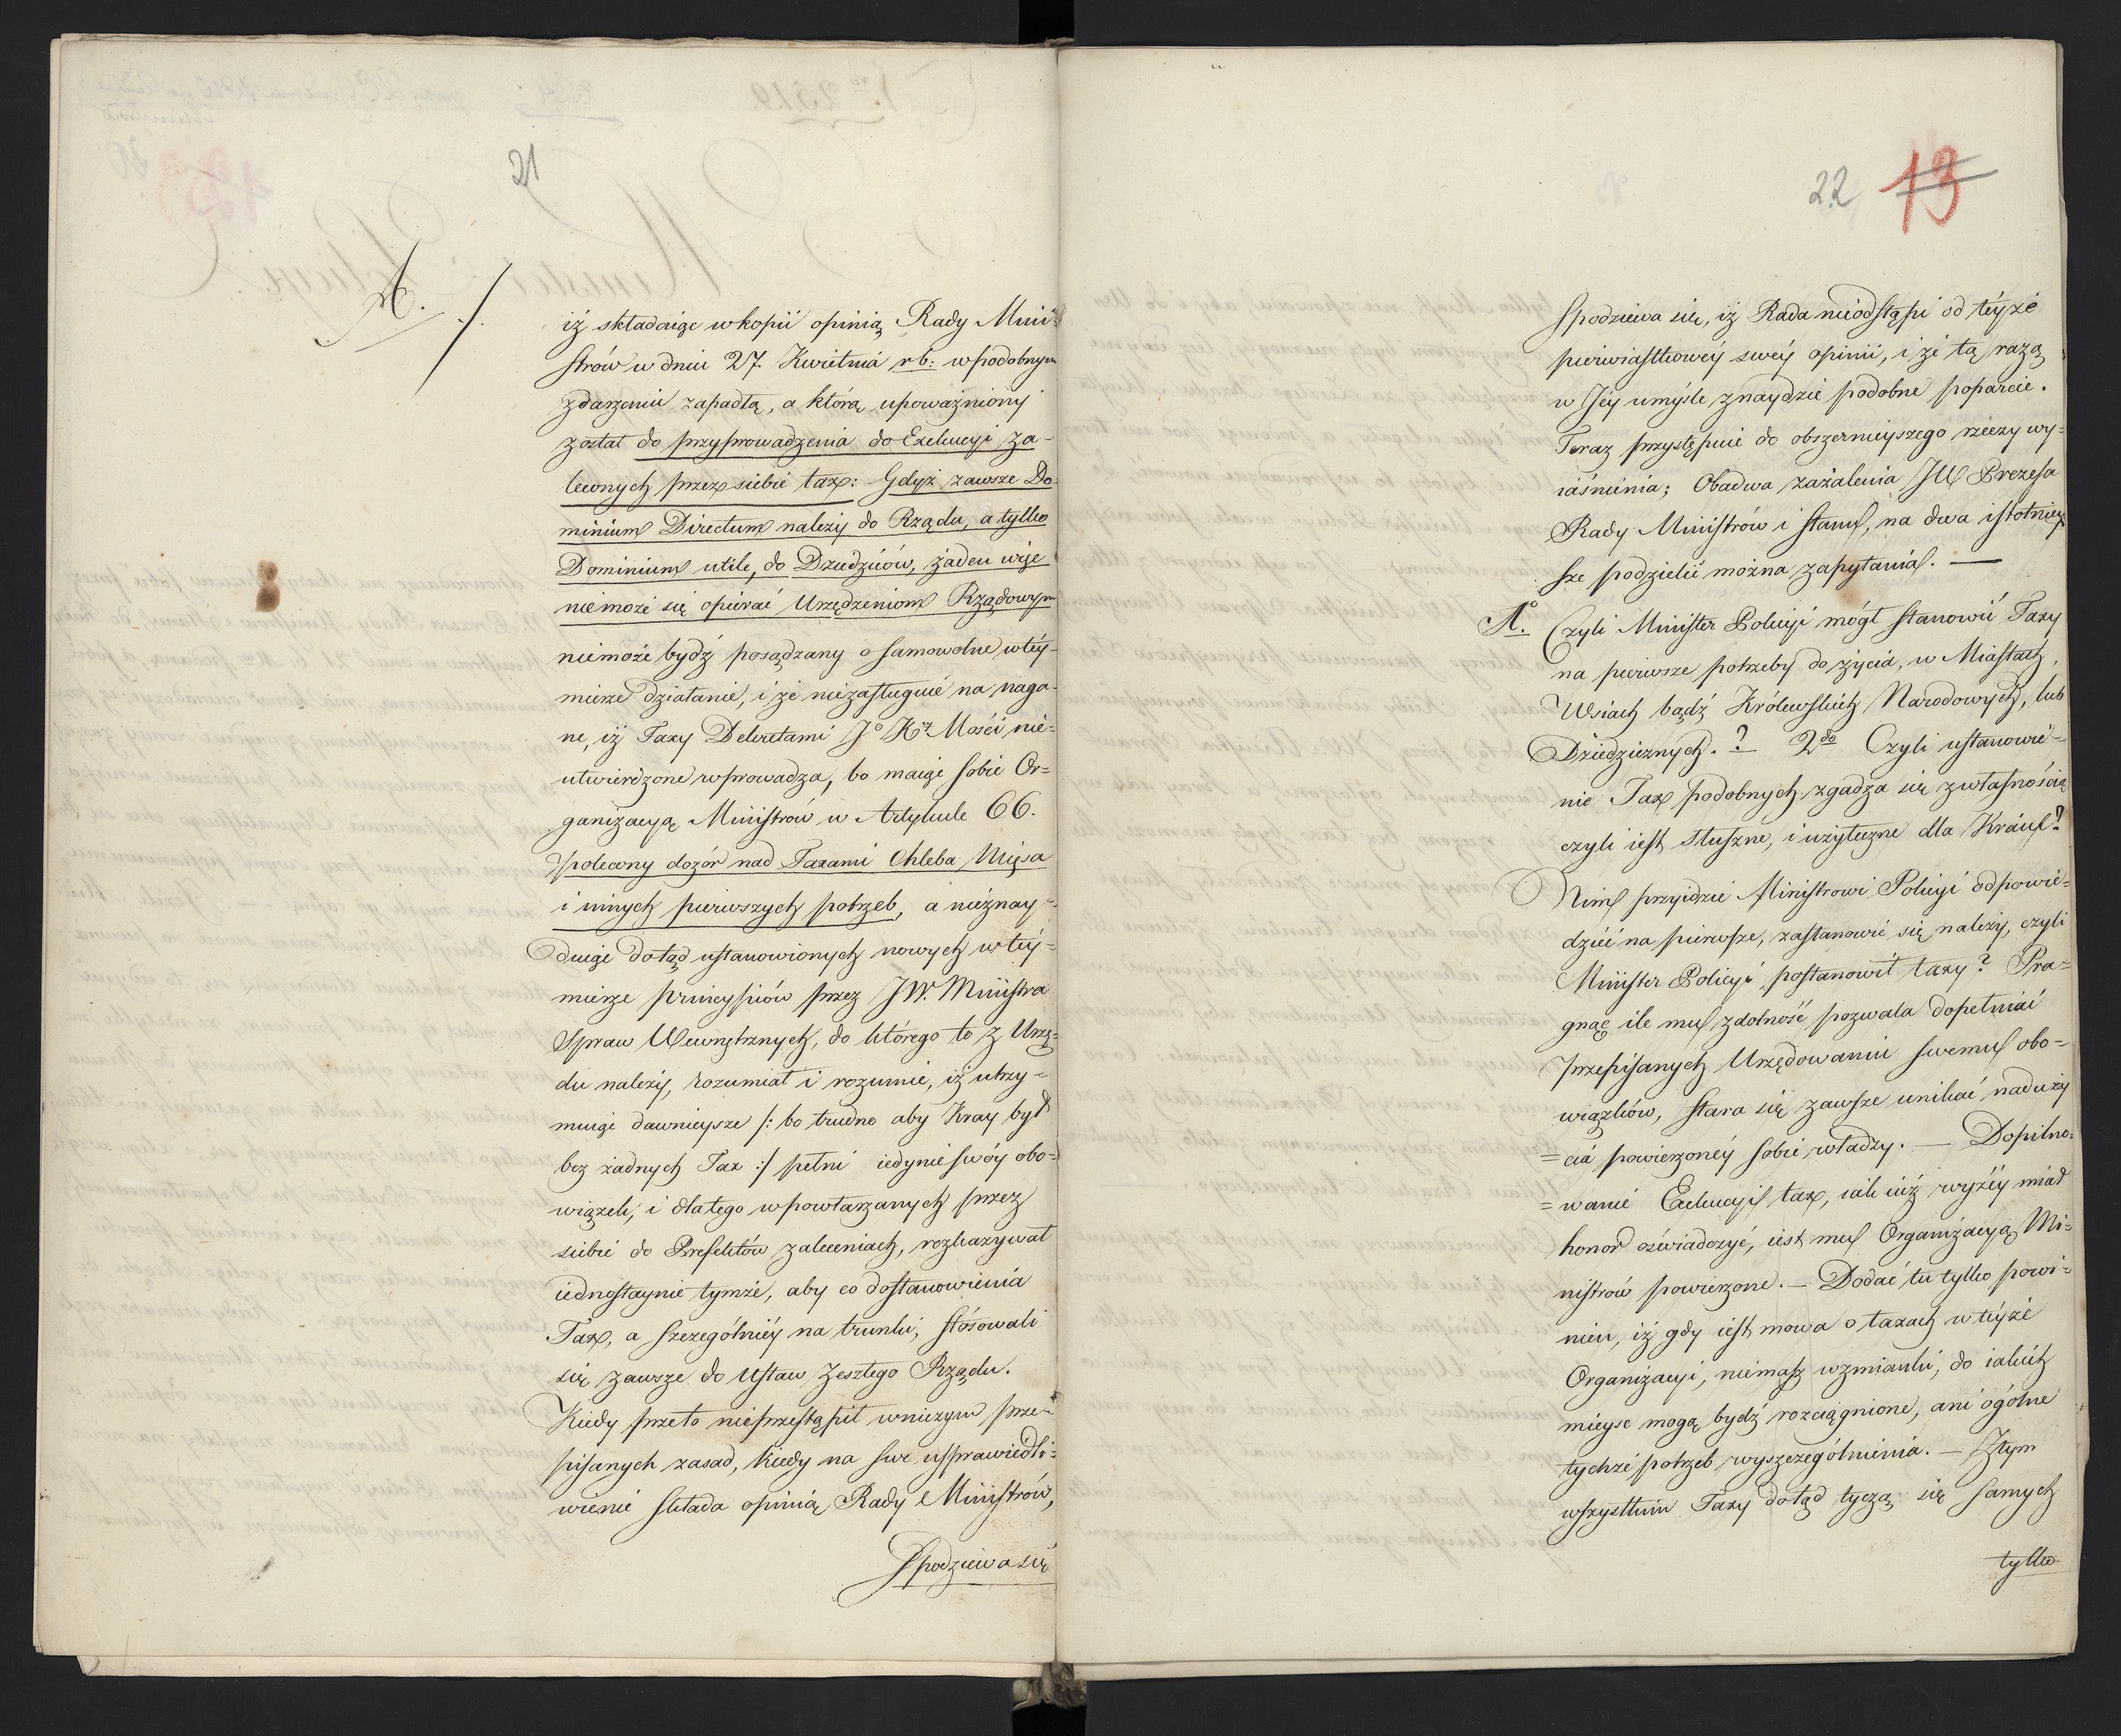 21
A. /.
iż składaiąc w kopii opinią Rady Mini-
strów w dniu 27. Kwietnia r b: w podobnym
zdarzeniu zapadłą, a którą upoważniony
został do przyprowadzenia do Exekucyi za-
leconych przez siebie tax: Gdyż zawsze Do-
minium Directum należy do Rządu, a tylko
Dominium utile, do Dziedziców, żaden więc
niemoże się opierać Urządzeniom Rządowym
niemoże bydź posądzany o samowolne w téy-
mierze działanie, i że niezasługuie na naga-
nę, iż Taxy Dekretami Jo Kr Mości nie-
utwierdzone wprowadza, bo maiąc sobie Or=
ganizacyą Ministrów w Artykule 66.
polecony dozór nad Taxami Chleba Mięsa
i innych pierwszych potrzeb, a nieznay-
duiąc dotąd ustanowionych nowych w téy=
mierze principiów przez JW. Ministra
Spraw Wewnętrznych, do którego to z Urzę-
du należy, rozumiał i rozumie, iż utrzy-
muiąc dawnieysze /: bo trudno aby Kray był
bez żadnych Tax :/ pełni iedynie swóy obo-
wiązek, i dlatego w powtarzanych przez
siebie do Prefektów zaleceniach, rozkazywał
iednostaynie tymże, aby co do stanowienia
Tax, a szczególniéy na trunki, stósowali
się zawsze do Ustaw zeszłego Rządu.
Kiedy przeto nieprzestąpił w niczym prze-
pisanych zasad, kiedy na swe usprawiedli-
wienie składa opinią Rady Ministrów,
Spodziewa się
22 13
Spodziewa się, iż Rada nieodstąpi od téyże
pierwiastkowéy swéy opinii, i że tą razą
w Jéy umyśle znaydzie podobne poparcie.
Teraz przystępuie do obszernieyszego rzeczy wy-
iaśnienia; Obadwa zażalenia JW Prezesa
Rady Ministrów i Stanu, na dwa istotniey
sze podzielić można zapytania. —
1o. Czyli Minister Policyi mógł stanowić Taxy
na pierwsze potrzeby do życia, w Miastach,
Wsiach bądź Królewskich Narodowych, lub
Dziedzicznych.? — 2do Czyli ustanowie-
nie Tax podobnych zgadza się z własnością
czyli iest słuszne, i użyteczne dla Kraiu?
Nim przyidzie Ministrowi Policyi odpowie-
dzieć na pierwsze, zastanowić się należy, czyli
Minister Policyi postanowił taxy? Pra-
gnąc ile mu zdolność pozwala dopełniać
przepisanych Urzędowaniu swemu obo-
wiązków, stara się zawsze unikać naduży
=cia powierzonéy sobie władzy. — Dopilno-
=wanie Exekucyi tax, iak iuż wyżéy miał
honor oświadczyć, iest mu Organizacyą Mi-
nistrów powierzone. — Dodać tu tylko powi-
nien, iż gdy iest mowa o taxach w téyże
Organizacyi, niemasz wzmianki, do iakich
mieysc mogą bydź rozciągnione, ani ogólne
tychże potrzeb wyszczególnienia. — Z tym
wszystkim Taxy dotąd tyczą się samych
tylko